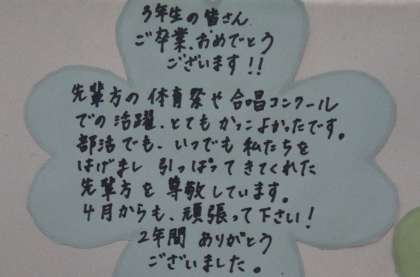 3年生の皆さん
ご卒業、おめでとう
ございます!!
先輩方の体育祭や合唱コンクール
での活躍、とてもかっこよかったです。
部活でも、いつでも私たちを
はげまし引っぱってきてくれた
先輩方を尊敬しています。
4月からも、頑張って下さい!
2年間ありがとう
ございました。